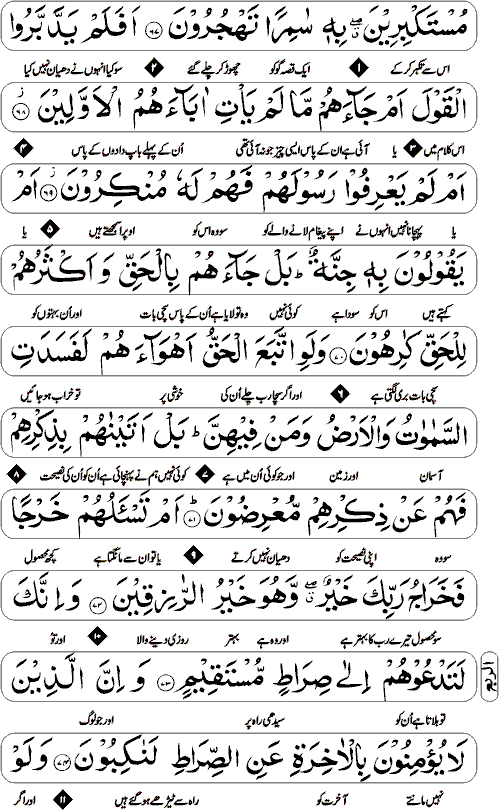 مُسْتَكْبِرِيْنَ ۖۗ بِهٖ سٰمِرًا تَهْجُرُوْنَ ﴿۶۷﴾ اَفَلَمْ يَدَّبَّرُوا
اس سے تکبر کر کے ۱ ایک قصہ گو کو چھوڑ کر چلے گئے ۲ سو کیا انہوں نے دھیان نہیں کیا
الْقَوْلَ اَمْ جَآءَهُمْ مَّا لَمْ يَاْتِ اٰبَآءَهُمُ الْاَوَّلِيْنَ ﴿۶۸﴾
اس کلام میں ۳ یا آئی ہے ان کے پاس ایسی چیز جو نہ آئی تھی اُن کے پہلے باپ دادوں کے پاس ۴
اَمْ لَمْ يَعْرِفُوْا رَسُوْلَهُمْ فَهُمْ لَهٗ مُنْكِرُوْنَ ﴿۶۹﴾ اَمْ
یا پہچانا نہیں انہوں نے اپنے پیغام لانے والے کو سو وہ اس کو اوپرا سمجھتے ہیں ۵ یا
يَقُوْلُوْنَ بِهٖ جِنَّةٌ ؕ بَلْ جَآءَهُمْ بِالْحَقِّ وَ اَكْثَرُهُمْ
کہتے ہیں اس کو سودا ہے کوئی نہیں وہ تو لایا ہے اُن کے پاس سچی بات اور اُن بہتوں کو
لِلْحَقِّ كٰرِهُوْنَ ﴿۷۰﴾ وَلَوِ اتَّبَعَ الْحَقُّ اَهْوَآءَهُمْ لَفَسَدَتِ
سچی بات بری لگتی ہے ۶ اور اگر سچا رب چلے اُن کی خوشی پر تو خراب ہو جائیں
السَّمٰوٰتُ وَالْاَرْضُ وَمَنْ فِيْهِنَّ ؕ بَلْ اَتَيْنٰهُمْ بِذِكْرِهِمْ
آسمان اور زمین اور جو کوئی اُن میں ہے ۷ کوئی نہیں ہم نے پہنچائی ہے اُن کو اُن کی نصیحت ۸
فَهُمْ عَنْ ذِكْرِهِمْ مُّعْرِضُوْنَ ﴿۷۱﴾ اَمْ تَسْـَٔلُهُمْ خَرْجًا
سو وہ اپنی نصیحت کو دھیان نہیں کرتے ۹ یا تو ان سے مانگتا ہے کچھ محصول
فَخَرَاجُ رَبِّكَ خَيْرٌ ۖۗ وَّهُوَ خَيْرُ الرّٰزِقِيْنَ ﴿۷۲﴾ وَ اِنَّكَ
سو محصول تیرے رب کا بہتر ہے اور وہ ہے بہتر روزی دینے والا ۱۰ اور تو
لَتَدْعُوْهُمْ اِلٰى صِرَاطٍ مُّسْتَقِيْمٍ ﴿۷۳﴾ وَ اِنَّ الَّذِيْنَ
الربع
تو بلاتا ہے اُن کو سیدھی راہ پر اور جو لوگ
لَا يُؤْمِنُوْنَ بِالْاٰخِرَةِ عَنِ الصِّرَاطِ لَنٰكِبُوْنَ ﴿۷۴﴾ وَلَوْ
نہیں مانتے آخرت کو راہ سے ٹیڑھے ہو گئے ہیں ۱۱ اور اگر